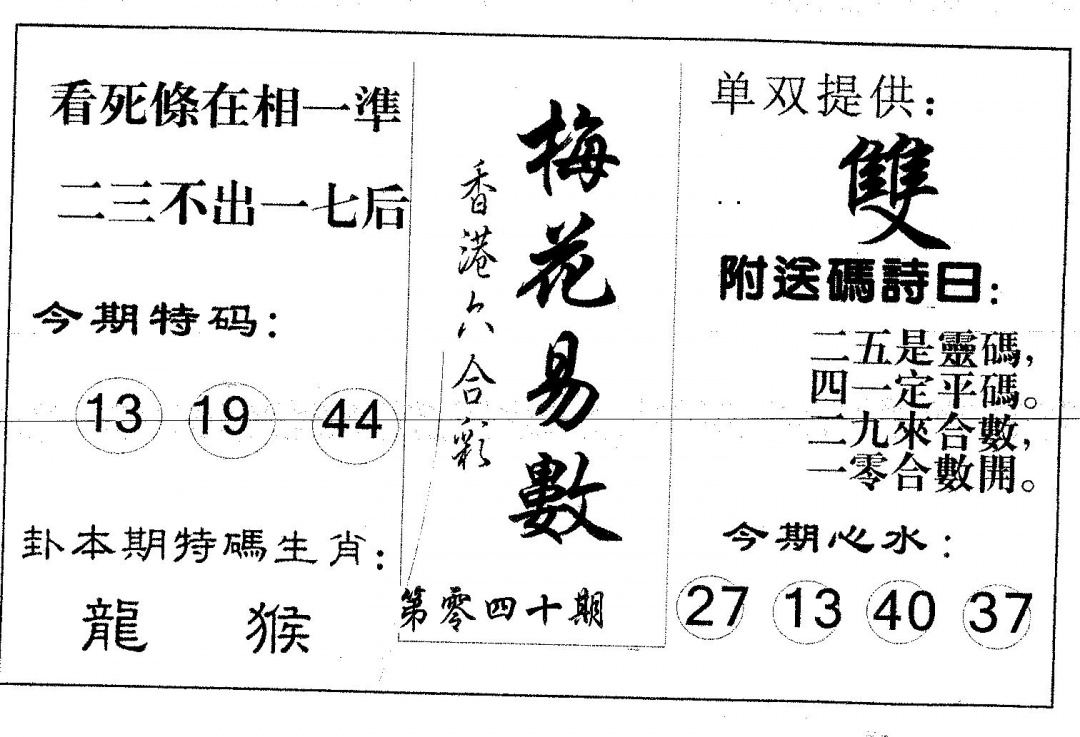 看死條在相一準
二三不出一七后
今期特码:
13 19 44
卦本期特碼生肖:
龍 猴
梅花易數
香港六合彩
第零四十期
单双提供:
雙
附送碼詩曰:
二五是靈碼,
四一定平碼。
二九來合數,
一零合數開。
今期心水:
27 13 40 37